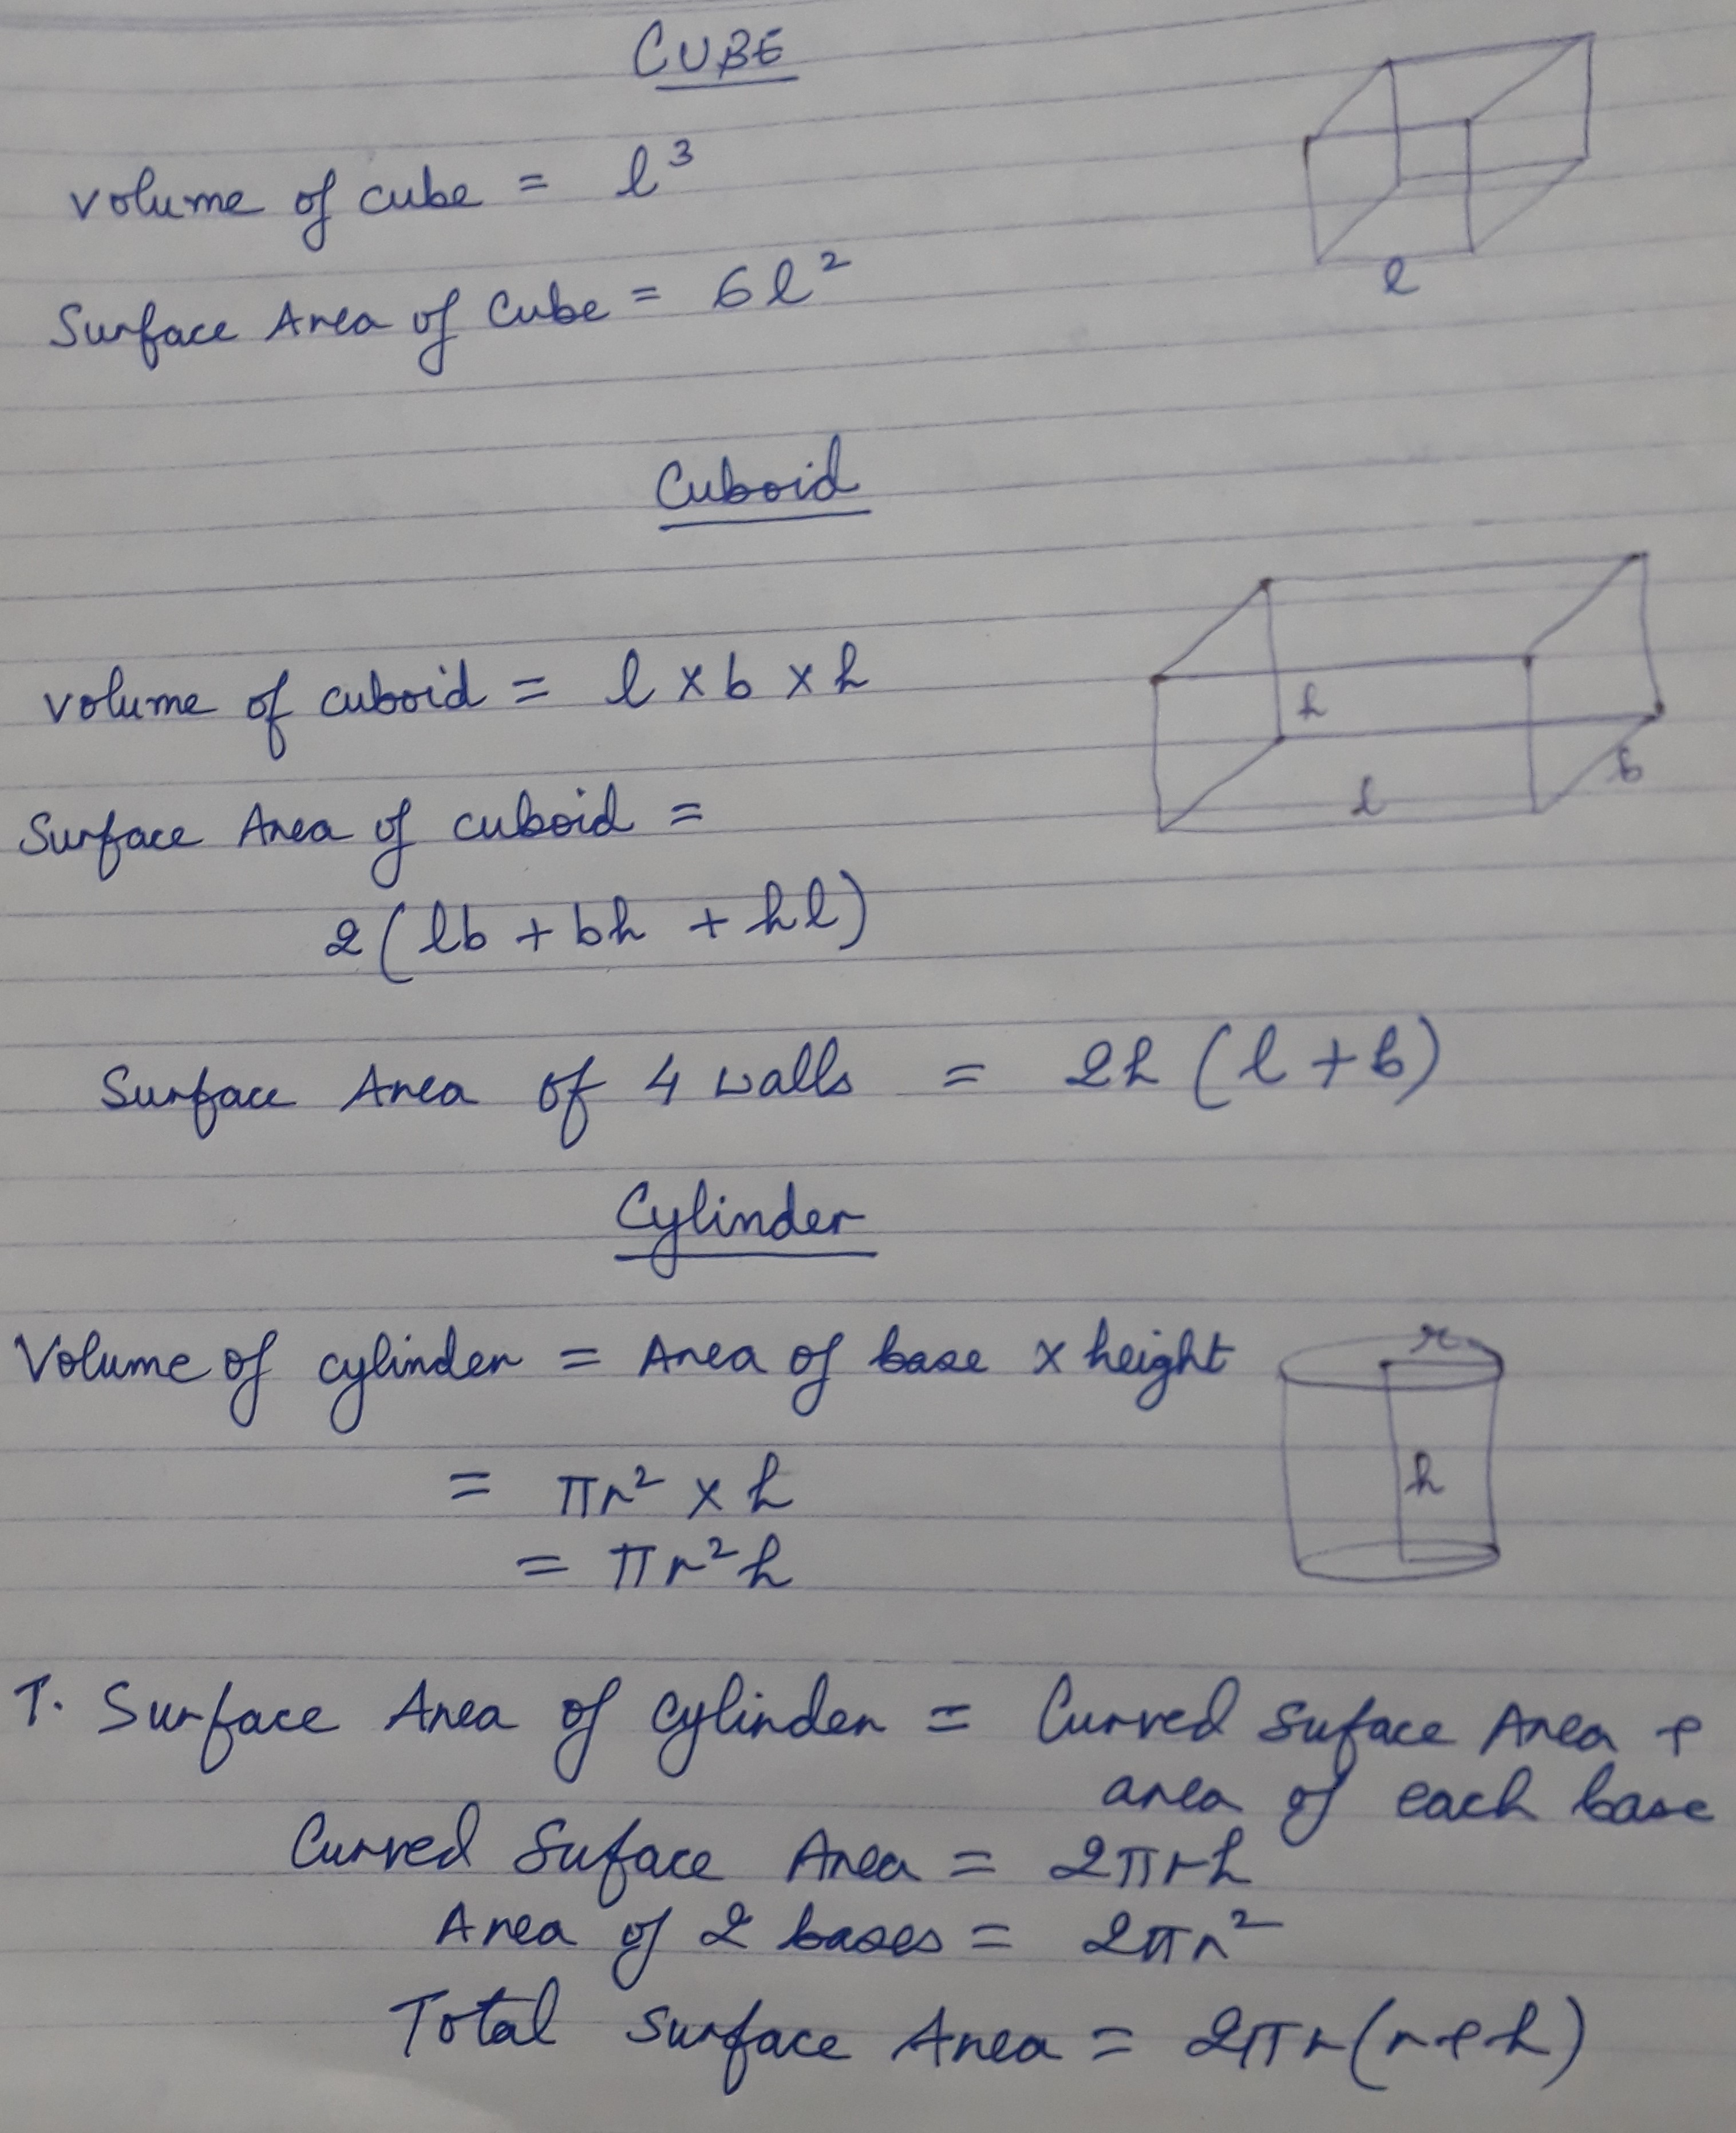 CUBE
volume of cube = l³
Surface Area of Cube = 6l²
l
Cuboid
volume of cuboid = l × b × h
h
b
l
Surface Area of cuboid =
2(lb + bh + hl)
Surface Area of 4 walls = 2h (l + b)
Cylinder
Volume of cylinder = Area of base × height
r
h
= πr² × h
= πr²h
T. Surface Area of cylinder = Curved Suface Area +
area of each base
Curved Suface Area = 2πrh
Area of 2 bases = 2πr²
Total Surface Area = 2πr(r+h)